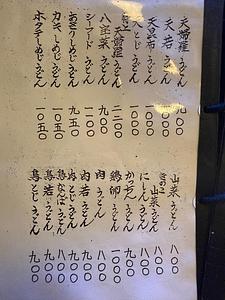 天婦羅うどん 九〇〇
天若うどん 九〇〇
天昆布うどん 一〇〇〇
天とじうどん 一〇〇〇
天鍋うどん 一一〇〇
八宝菜うどん 九〇〇
シーフードうどん 九〇〇
あさりしめじうどん
カキしめじうどん 一〇五〇
ホタテしめじうどん 一〇五〇
山菜うどん 八〇〇
きのこ山菜うどん 八〇〇
にしんうどん 九〇〇
かやくうどん 九〇〇
鶏卵うどん
肉うどん 八〇〇
肉若うどん 九〇〇
肉とじうどん 九〇〇
鶏なんばうどん 八〇〇
鶏若うどん 九〇〇
鶏とじうどん 九〇〇